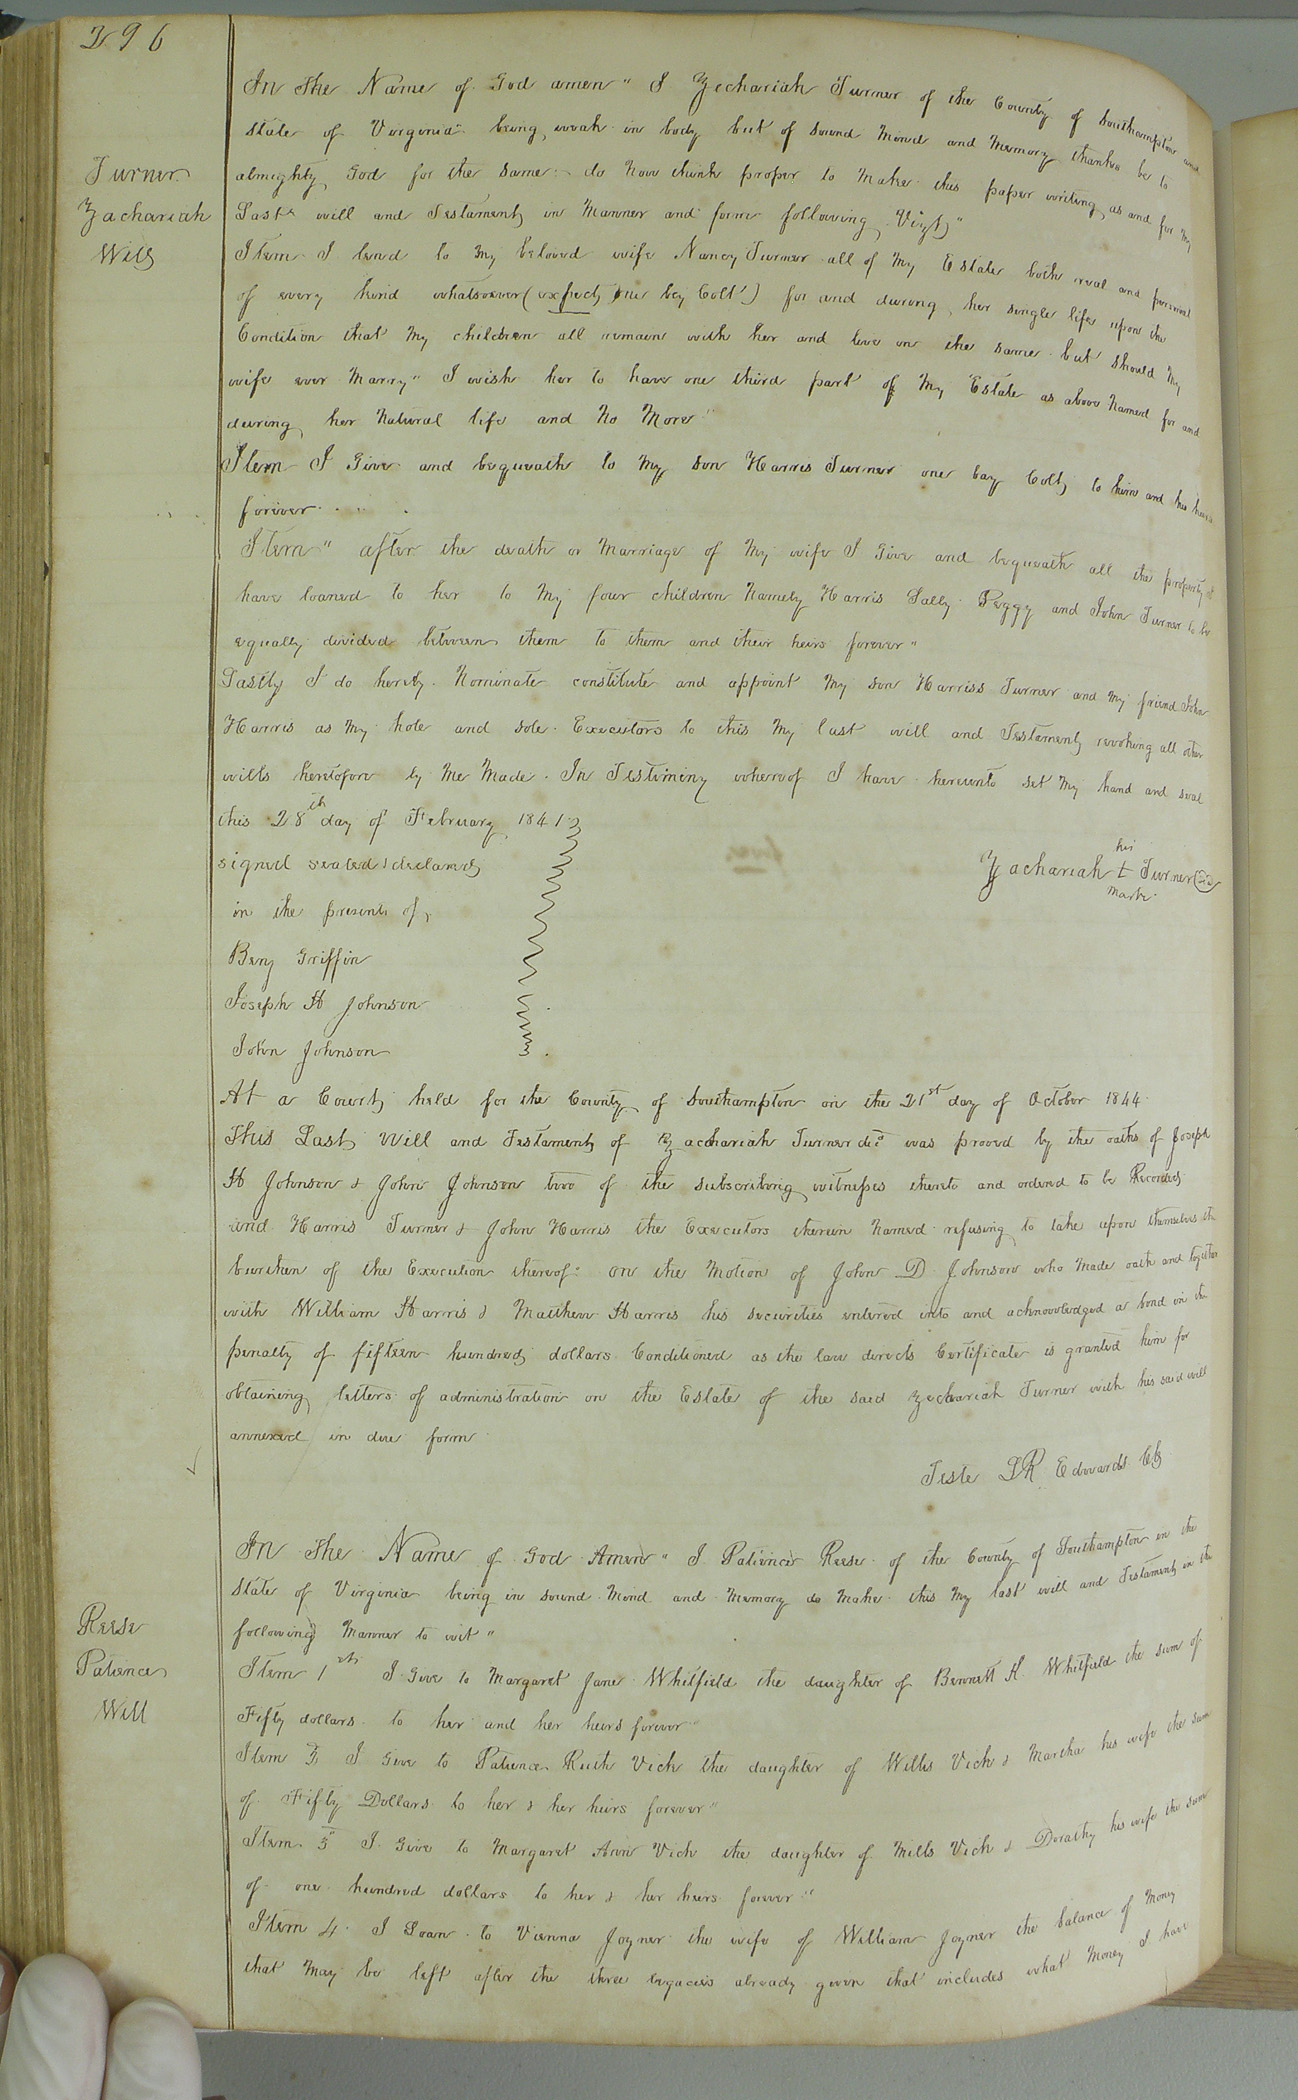 296
Turner
Zachariah
Will
In The Name of God amen" I Zechariah Turner of the County of Southampton and
State of Virginia being weak in body but of sound Mind and Memory thanks be to
almighty God for the same do Now think proper to Make this paper writing as and for My
Last will and Testament in Manner and form following Vizt"
Item I lend to My beloved wife Nancy Turner all of My Estate both real and personal
of every kind whatsoever (except one bay Colt) for and during her single life upon the
Condition that My children all remain with her and live on the same but should My
wife ever Marry" I wish her to have one third part of My Estate as above Named for and
during her Natural life and No More"
Item I Give and bequeath to My son Harris Turner one bay Colt to him and his heirs
forever
Item" after the death or Marriage of My wife I Give and bequeath all the property I
have loaned to her to My four children Namely Harris Sally Peggy and John Turner to be
equally divided between them to them and their heirs forever"
Lastly I do hereby Nominate constitute and appoint My son Harriss Turner and My friend John
Harris as My hole and sole Executors to this My last will and Testament revoking all other
wills heretofore by Me Made. In Testiminy whereof I have hereunto set My hand and seal
this 28th day of February 1841
signed sealed & declared
in the presents of
his
Zachariah + Turner (Seal)
Mark
Benj Griffin
Joseph H Johnson
John Johnson
At a Court held for the County of Southampton on the 21st day of October 1844
This Last Will and Testament of Zacchariah Turner decd was proved by the oaths of Joseph
H Johnson & John Johnson two of the subscribing witnesses thereto and ordered to be Recorded
and Harris Turner & John Harris the Executors therein Named refusing to take upon themselves the
burthen of the Execution thereof: on the Motion of John D Johnson who Made oath and together
with William Harris & Matthew Harris his securities entered into and acknowledged a bond in the
penalty of fifteen hundred dollars Conditioned as the law directs Certificate is granted him for
obtaining letters of administration on the Estate of the said Zechariah Turner with his said will
annexed in due form
Teste LR Edwards CC
Reese
Patience
Will
In The Name of God Amen" I Patience Reese of the County of Southampton in the
State of Virginia being in sound Mind and Memory do Make this My last will and Testament in the
following Manner to wit"
Item 1st I Give to Margaret Jane Whitfield the daughter of Bennett H Whitfield the sum of
Fifty dollars to her and her heirs forever"
Item I Give to Patience Ruth Vick the daughter of Willis Vick & Martha his wife the sum
of Fifty Dollars to her & her heirs forever"
Item 3 I Give to Margaret Ann Vick the daughter of Mills Vick & Dorathy his wife the sum
of one hundred dollars to her & her heirs forever"
Item 4 I Loan to Vienna Joyner the wife of William Joyner the balance of Money
that May be left after the three legacies already given that includes what Money I have